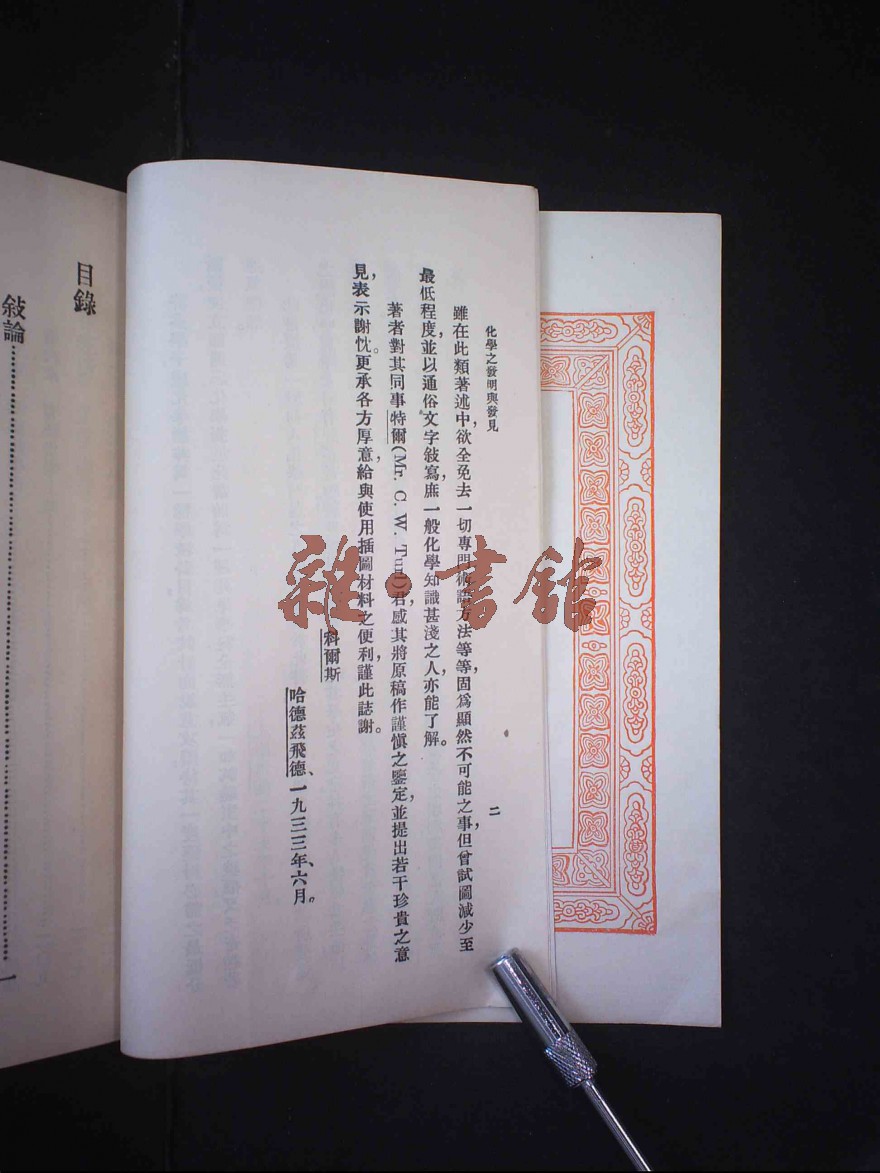 化學之發明與發見
二
雖在此類著述中，欲全免去一切專門術語方法等等，固爲顯然不可能之事，但曾試圖減少至
最低程度，並以通俗文字敍寫，庶一般化學知識甚淺之人亦能了解。
著者對其同事特爾(Mr. C. W. Tull)君感其將原稿作謹愼之鑒定，並提出若干珍貴之意
見，表示謝忱。更承各方厚意給與使用插圖材料之便利，謹此誌謝。
科爾斯
哈德茲飛德、一九三三年、六月。
目錄
敍論……………………………………一
雜·書館